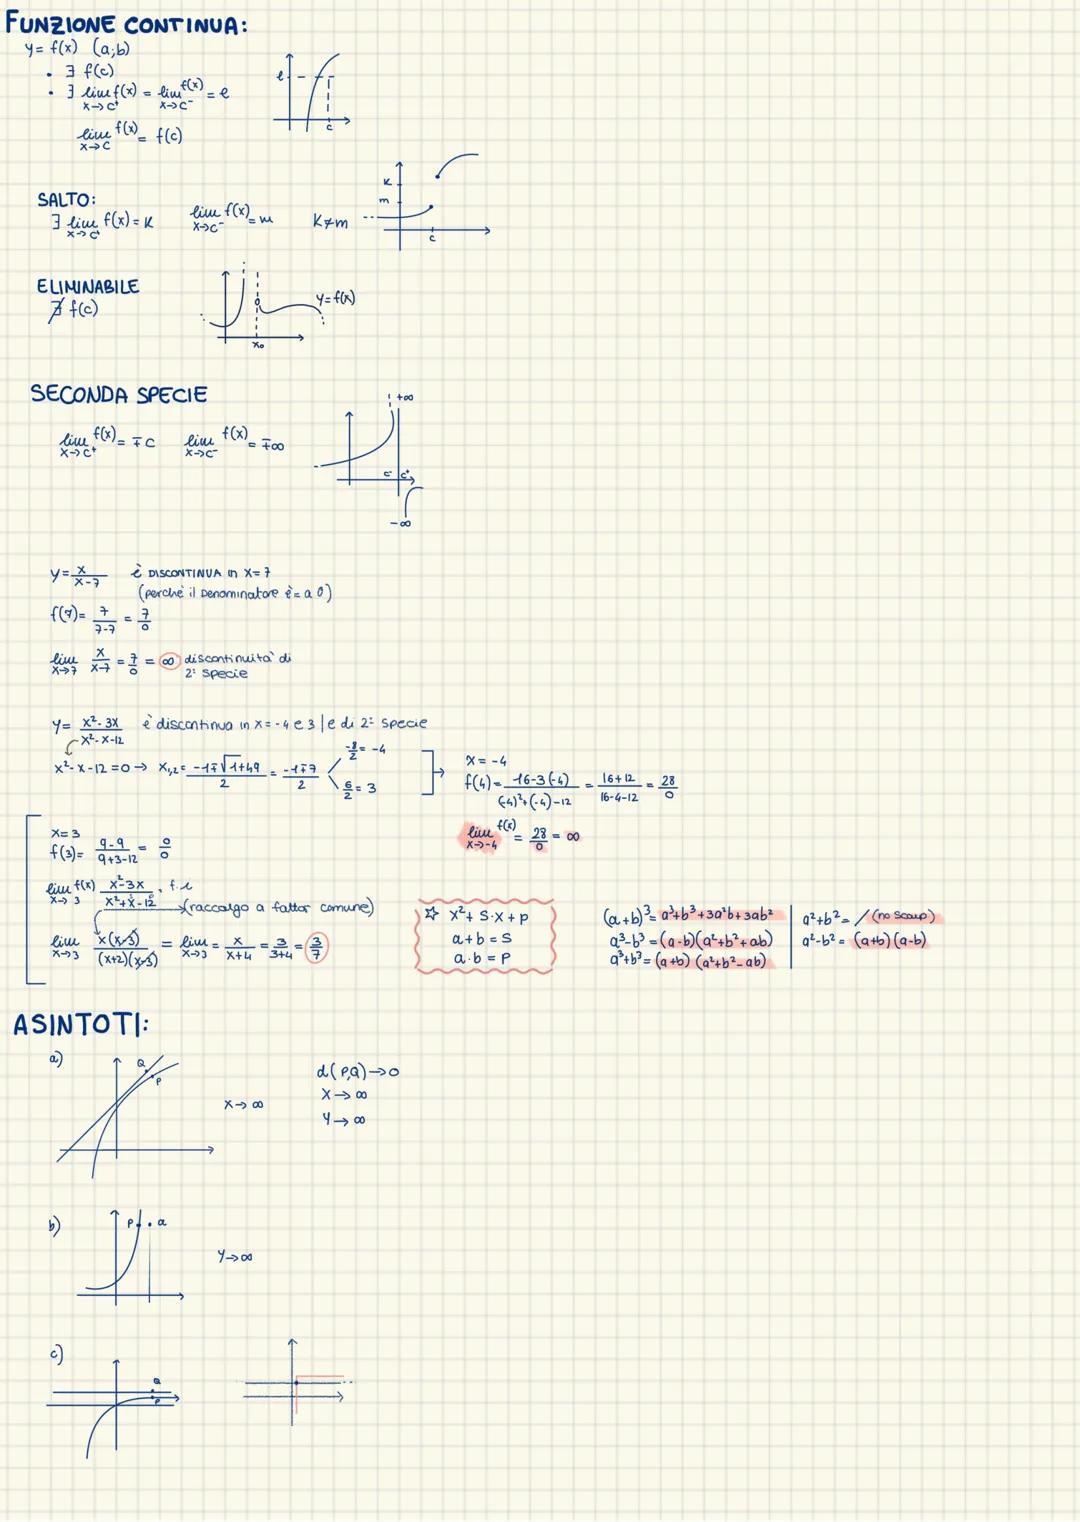 FUNZIONE CONTINUA:
y = f(x) (a;b)
• ∃ f(c)
• ∃ lim x→c⁺ f(x) = lim x→c⁻ f(x) = e
lim x→c f(x) = f(c)
l
c
SALTO:
∃ lim x→c⁺ f(x) = K lim x→c⁻ f(x) = m K≠m
K
m
c
ELIMINABILE
∄ f(c)
y=f(x)
x₀
SECONDA SPECIE
lim x→c⁺ f(x) = ∓c lim x→c⁻ f(x) = ∓∞
+∞
c⁻ c⁺
-∞
y = x/(x-7) è DISCONTINUA in X=7
(perchè il Denominatore è = a 0)
f(7) = 7/(7-7) = 7/0
lim x→7 x/(x-7) = 7/0 = ∞ discontinuità di
2ª specie
y = (x²-3x)/(x²-x-12) è discontinua in x=-4 e 3 | e di 2ª specie
x²-x-12=0 → x₁,₂ = (-1∓√1+49)/2 = (-1∓7)/2 -8/2 = -4
6/2 = 3
x = -4
f(4) = (16-3(-4))/((-4)²+(-4)-12) = (16+12)/(16-4-12) = 28/0
lim x→-4 f(x) = 28/0 = ∞
x=3
f(3) = (9-9)/(9+3-12) = 0/0
lim x→3 f(x) (x²-3x)/(x²+x-12), f.i
(raccolgo a fattor comune)
lim x→3 x(x-3)/(x+2)(x-3) = lim x→3 = x/(x+4) = 3/(3+4) = 3/7
☆ x²+S·x+p
a+b=S
a·b=P
(a+b)³ = a³+b³+3a²b+3ab²
a³-b³ = (a-b)(a²+b²+ab)
a³+b³ = (a+b)(a²+b²-ab)
a²+b² = / (no scomp)
a²-b² = (a+b)(a-b)
ASINTOTI:
a)
Q
P
X→∞
d(P,Q)→0
X→∞
Y→∞
b)
P Q
Y→∞
c)
Q
P